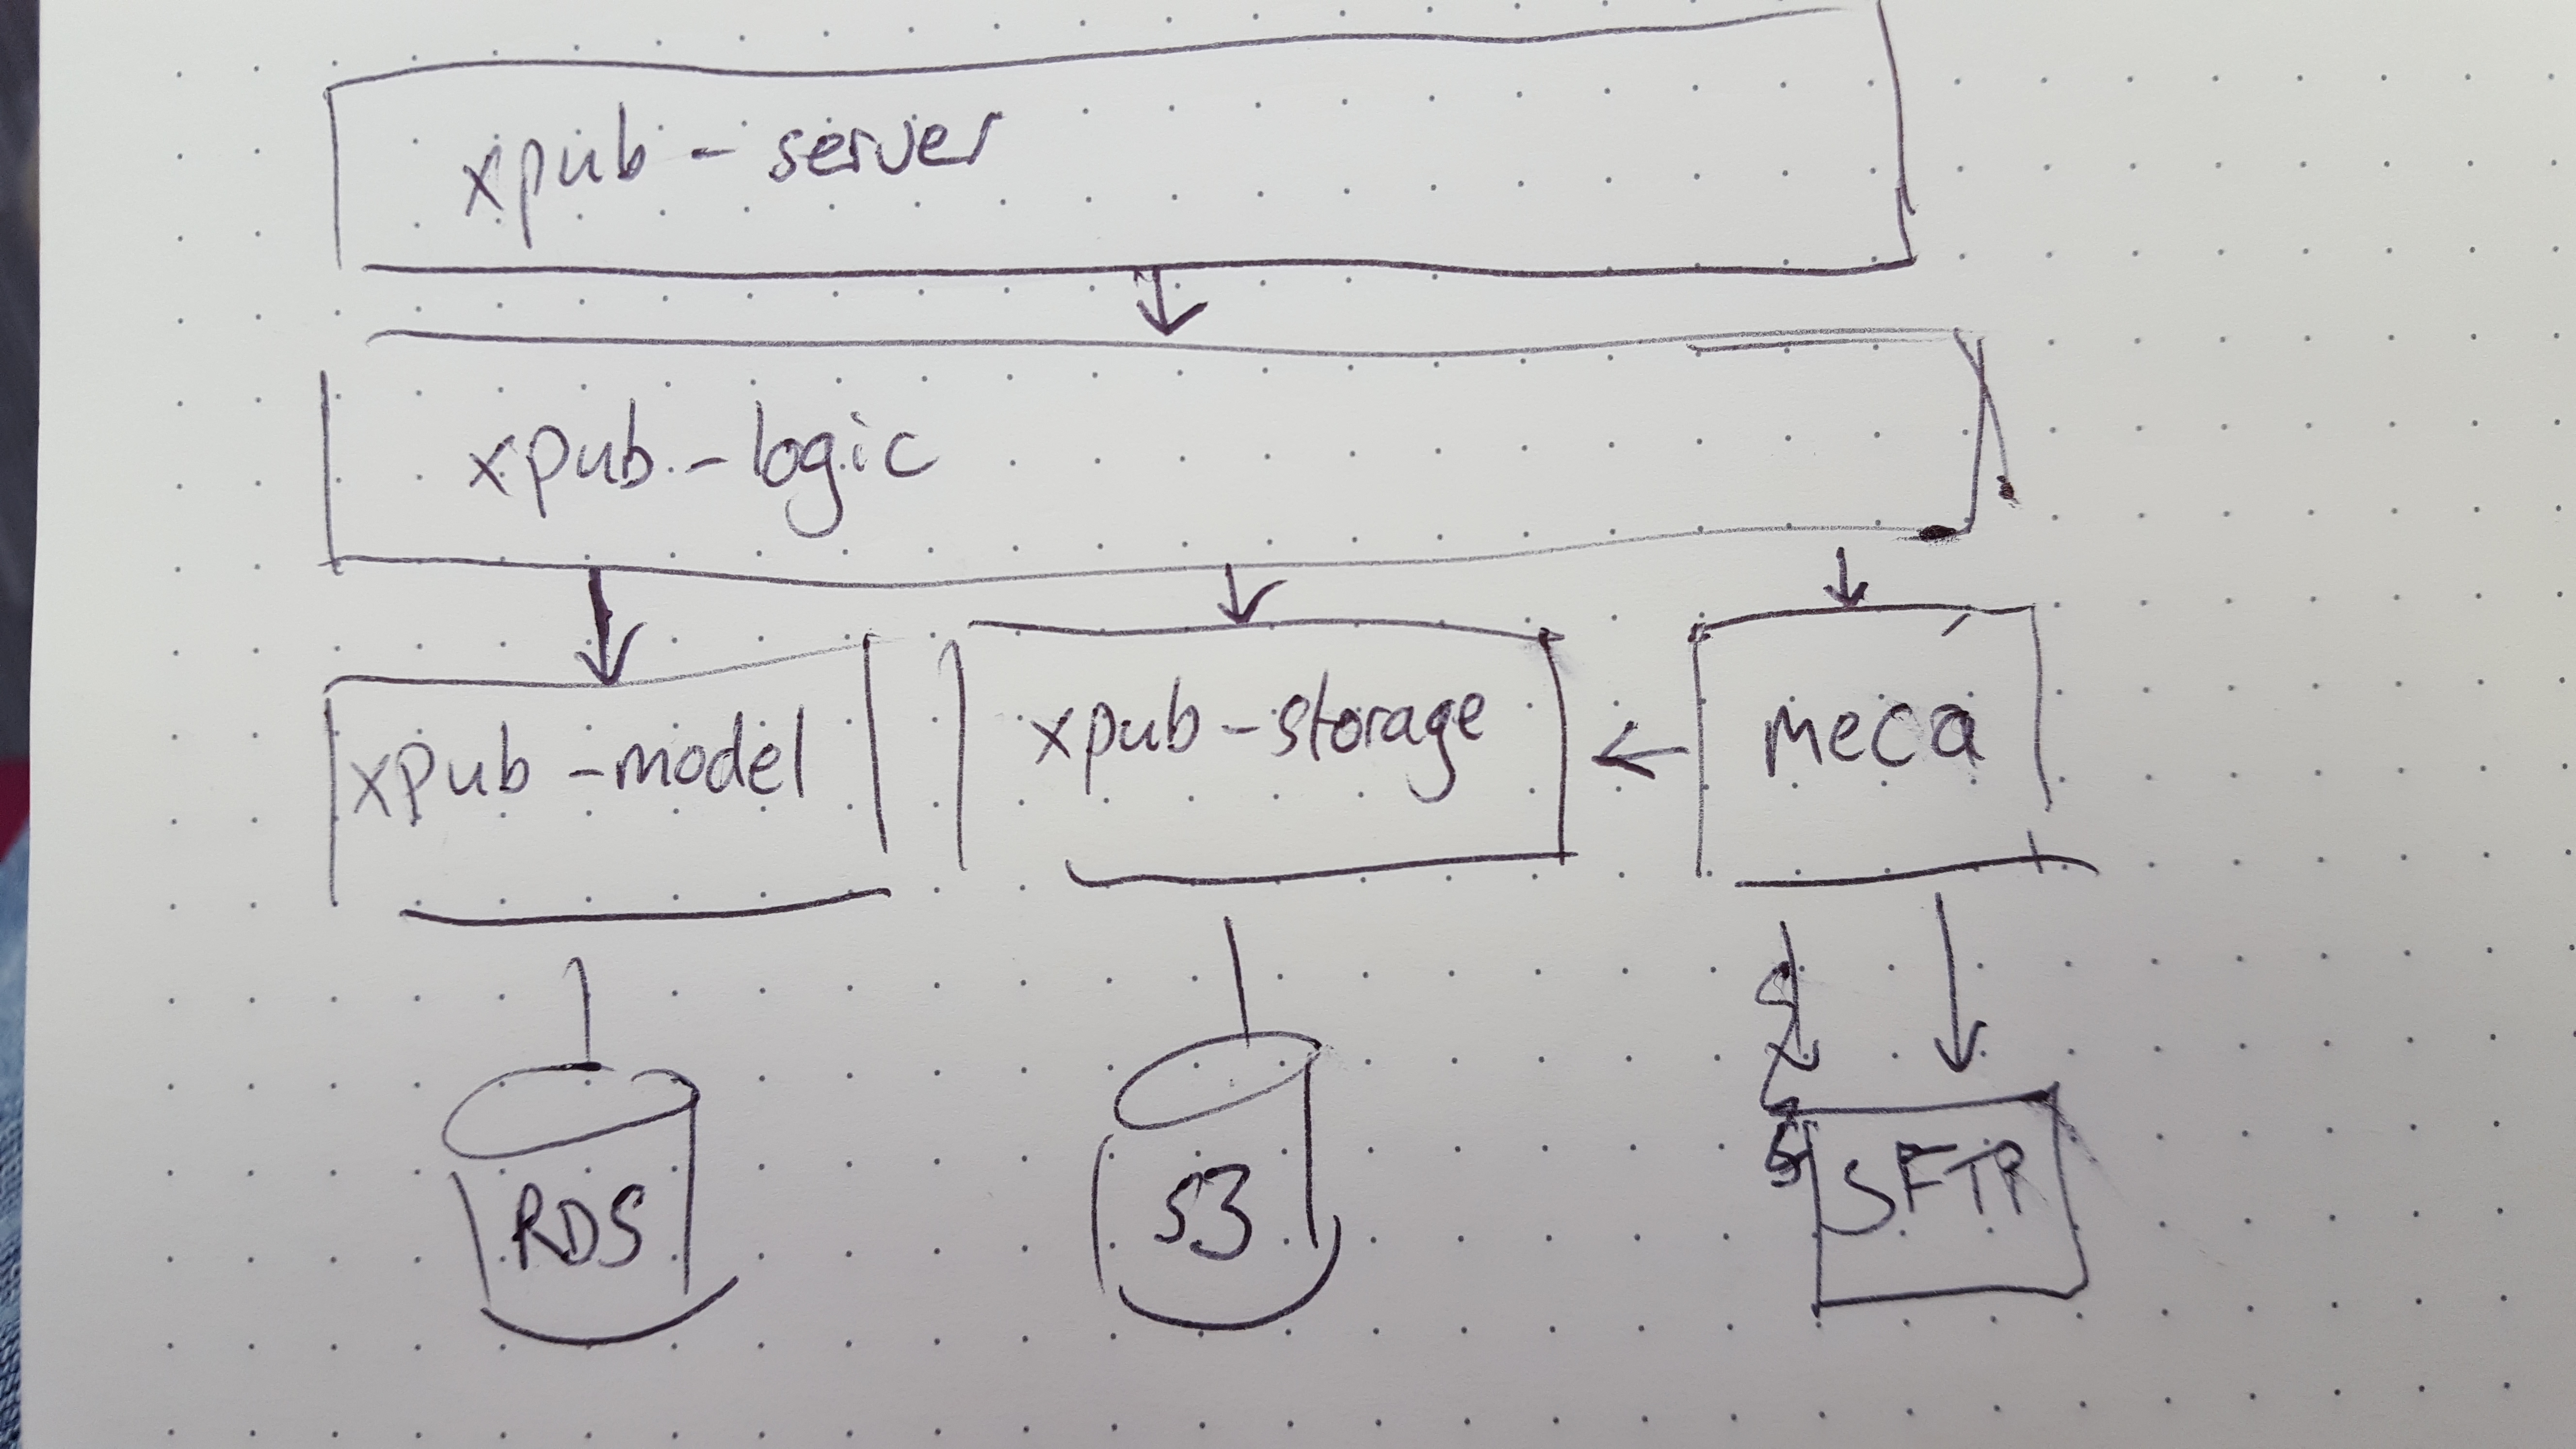 xpub - server
xpub - logic
xpub - model
xpub - storage
meca
RDS
S3
SFTP